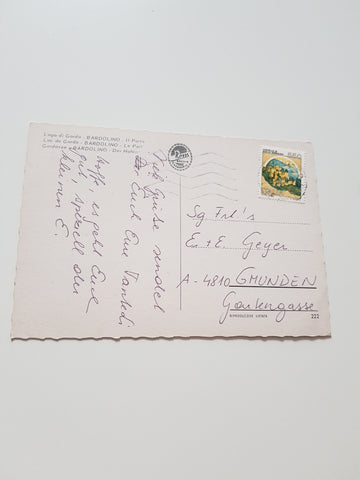 Lago di Garda - BARDOLINO - Il Porto
Lac de Garda - BARDOLINO - Le Port
Gardasee - BARDOLINO - Der Hafen
Grüße sendet
Euch Eure Tante
hoffe, es geht Euch
gut, speziell der
kleinen E.
Sg Frl's
E. + E. Geyer
A - 4810 GMUNDEN
RIPRODUZIONE VIETATA
222